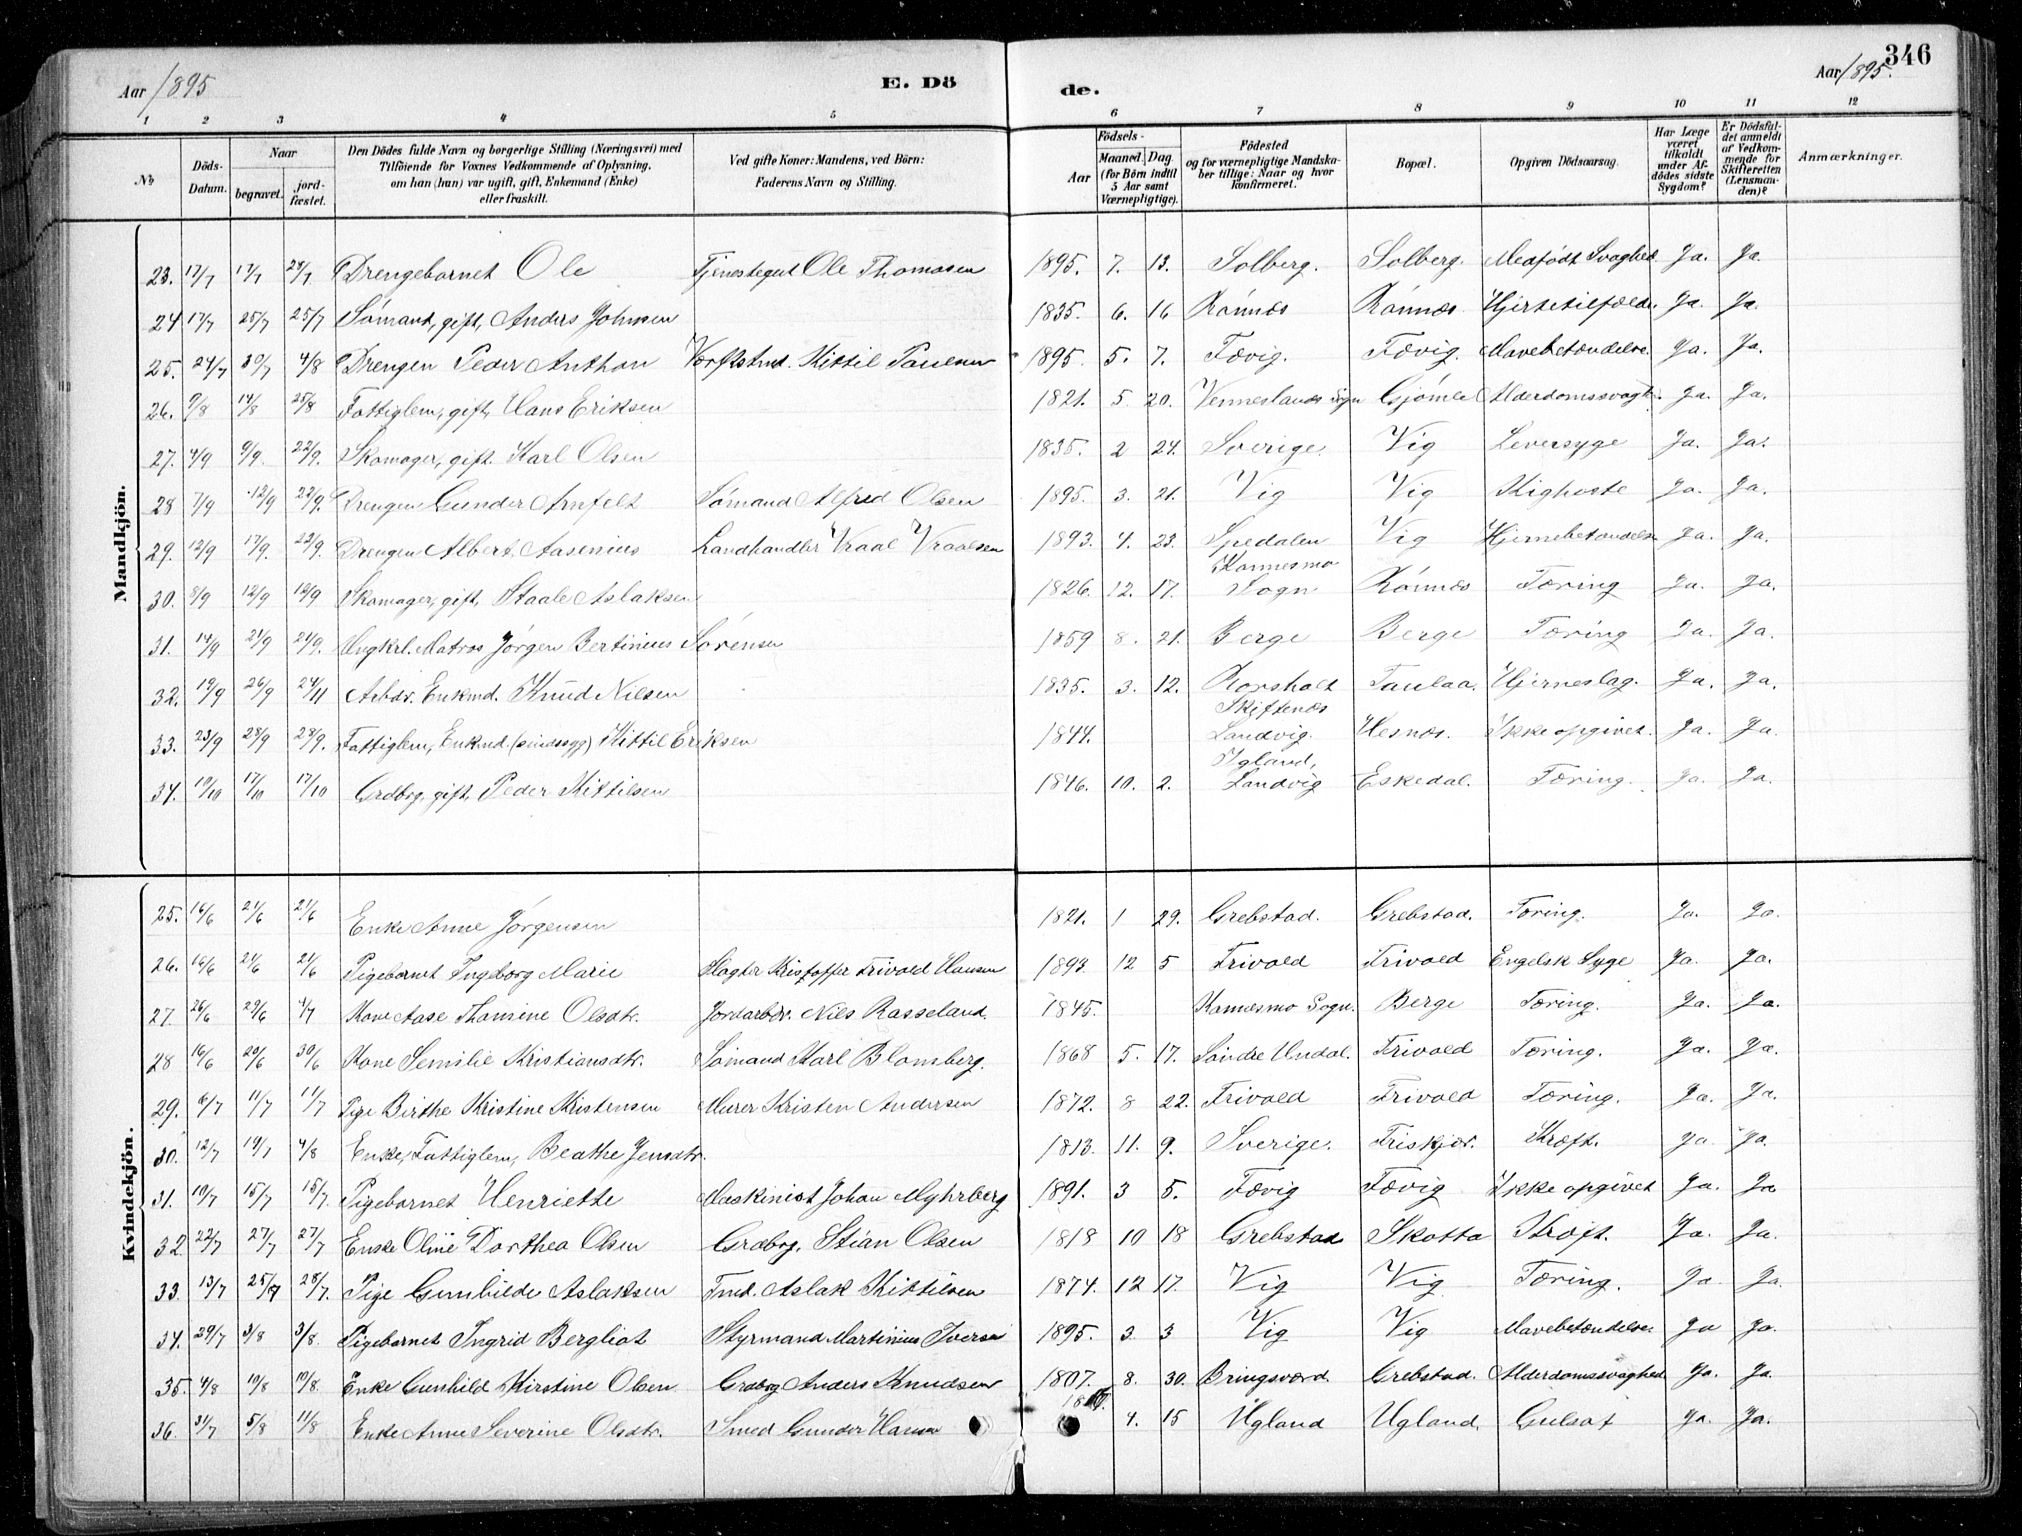 346
Aar 1895 E. Dö de. Aar 1895.
1 2 3 4 5 6 7 8 9 10 11 12
No Döds-Datum. Naar begravet. jord-fæstet. Den Dödes fulde Navn og borgerlige Stilling (Næringsvei) med Tilföiende for Voxnes Vedkommende af Oplysning, om han (hun) var ugift, gift, Enkemand (Enke) eller fraskilt. Ved gifte Koner: Mandens, ved Börn: Faderens Navn og Stilling. Födsels- Aar Maaned. Dag. (for Börn indtil 5 Aar samt Værnepligtige). Födested og for værnepligtige Mandskaber tillige: Naar og hvor konfirmeret. Bopæl. Opgiven Dödsaarsag. Har Læge været tilkaldt under Afdödes sidste Sygdom? Er Dödsfaldet anmeldt af Vedkommende for Skifteretten (Lensmanden)? Anmærkninger.
Mandkjön.
23. 17/7 17/7 28/7 Drengebarnet Ole Tjenestegut Ole Thomasen 1895. 7. 13. Solberg. Solberg. Medfødt Svaghed Ja. Ja.
24 17/7 25/7 25/7 Sømand, gift, Anders Johnsen 1835. 6. 16 Rønnes Rønnes Hjertetilfælde. Ja. Ja.
25. 24/7 30/7 4/8 Drengen Peder Anthon Værftsmd. Kittil Paulsen 1895. 5. 7. Fævig. Fævig. Mavebetændelse. Ja. Ja.
26. 9/8 14/8 25/8 Fattiglem, gift, Hans Eriksen 1821. 5 20. Venneslands sogn Gjømle Alderdomssvagh. Ja. Ja.
27. 4/9 9/9. 22/9. Skomager, gift. Karl Olsen 1835. 2 24. Sverige. Vig Leversyge Ja. Ja.
28 7/9 12/9 22/9. Drengen Gunder Arnfelt Sømand Alfred Olsen 1895. 3. 21. Vig Vig Kighoste Ja. Ja.
29. 12/9 17/9. 22/9. Drengen Albert Aasenius Landhandler Vraal Vraalsen 1893. 4. 23. Spedalen Vig Hjernebetændelse Ja. Ja.
30. 8/9 12/9 12/9 Skomager, gift, Staale Aslaksen 1826. 12. 17. Kannesmo Sogn Rønnes Tæring Ja. Ja.
31. 14/9 21/9 21/9. Ungkrl. Matros Jørgen Bertinius Sørensen 1859 8. 21. Berge Berge Tæring Ja. Ja.
32. 19/9 26/9 24/11 Arbdr. Enkmd. Knud Nilsen 1835. 3. 12. Roresholt Taulaa. Hjerneslag. Ja. Ja.
33. 23/9 28/9 28/9. Fattiglem, Enkmd. (sindssyg) Kittil Eriksen 1844. Skiftenes Landvig. Hesnes. Ikke opgivet. Ja. Ja.
34. 10/10 17/10 17/10 Grdbrg. gift, Peder Kittilsen 1846. 10. 2. Igland, Landvig Eskedal. Tæring. Ja. Ja.
Kvindekjön.
25. 16/6 21/6 21/6 Enke Anne Jørgensen 1821. 1 29. Grebstad. Grebstad. Tæring. Ja. Ja.
26. 16/6 21/6 21/6 Pigebarnet Ingeborg Marie Slagter Kristoffer Frivold Hansen 1893. 12 5 Frivold Frivold Engelsk Syge Ja. Ja.
27. 26/6 29/6 4/7 Kone Aase Thomine Olsdtr. Jordarbdr. Nils Rasseland. 1845. Kannesmo Sogn. Berge Tæring. Ja. Ja.
28 16/6 20/6 30/6 Kone Semilie Kristiansdtr. Sømand Karl Blomberg. 1868 5. 17. Søndre Undal. Frivold Tæring. Ja. Ja.
29. 6/7 11/7 11/7 Pige Birthe Kristine Kristensen Murer Kristen Andersen 1872. 8 22. Frivold Frivold Tæring. Ja. Ja.
30. 12/7 19/7 4/8 Enke, Fattiglem, Beathe Jensdtr. 1813. 11. 9. Sverige. Friskjær. Kræft. Ja Ja.
31. 10/7 15/7 15/7. Pigebarnet Henriette Maskinist Johan Myhrberg 1891. 3 5. Fævig Fævig Ikke opgivet Ja. Ja
32. 22/7 27/7 27/7 Enke Oline Dorthea Olsen Grdbrg. Stian Olsen 1818 10 18 Grebstad Skotta Kræft. Ja. Ja.
33. 13/7 25/7 28/7. Pige Gunhilde Aslaksen Tmd. Aslak Kittilsen 1874. 12 17. Vig Vig Tæring. Ja Ja.
34. 29/7 3/8 3/8. Pigebarnet Ingrid Bergliot Styrmand Martinius Iversen 1895. 3 3 Vig Vig Mavebetændelse. Ja Ja.
35. 4/8 10/8 10/8. Enke Gunhild Kirstine Olsen Grdbrg Anders Knudsen 1807. 8. 30. Bringsværd. Grebstad. Alderdomssvaghed Ja. Ja.
36. 31/7 5/8 11/8 Enke Anne Severine Olsdtr. Smed Gunder Hansen 4. 15 Ugland Ugland. Gulsot Ja. Ja.